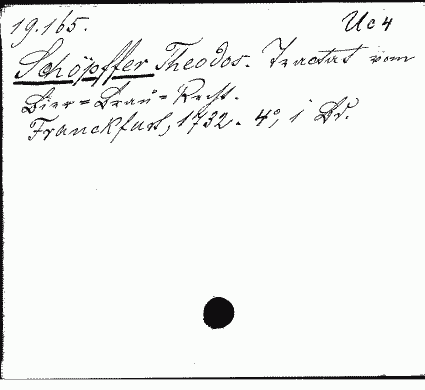 19.165. Uc4
Schöpffer Theodos. Tractat vom
Bier=Brau=Recht.
Franckfurt, 1732. 4°, 1 Bd.